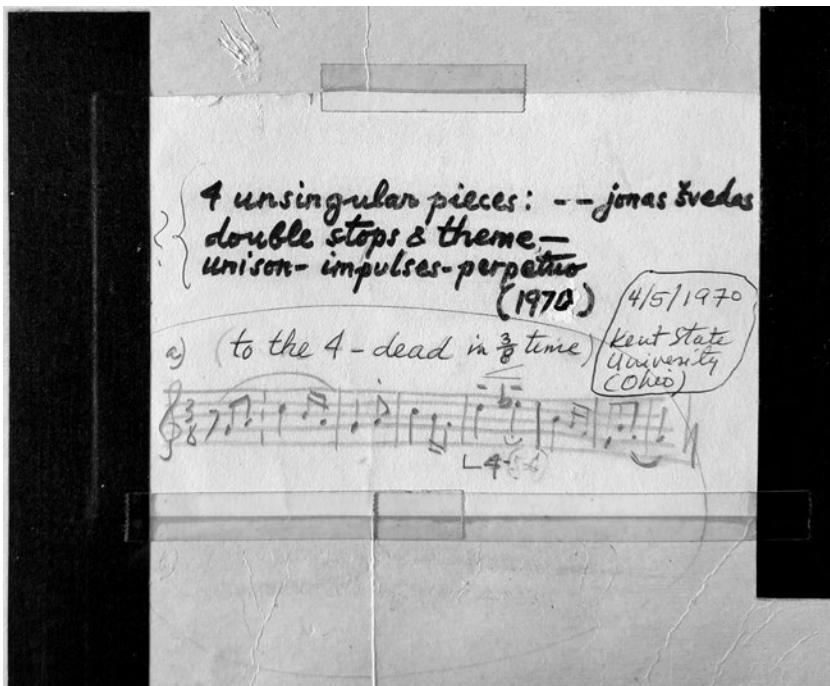 4 unsingular pieces: -- jonas švedas
double stops & theme –
unison - impulses - perpetuo
(1970)
4/5/1970
Kent State
University
(Ohio)
a) (to the 4 - dead in 3/8 time)
3/8
4